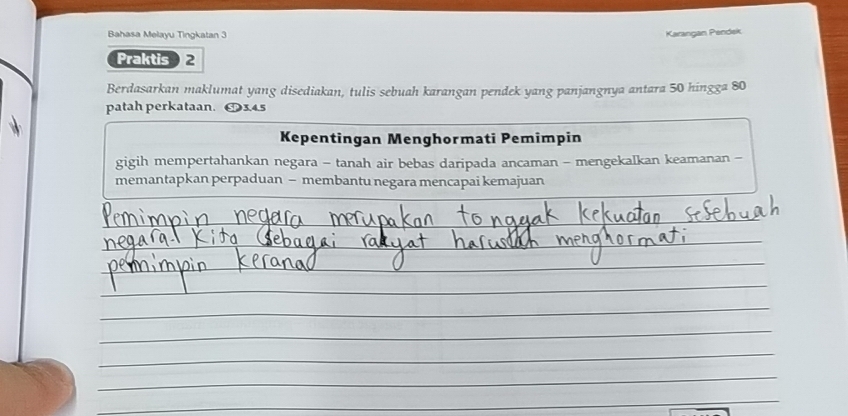 Bahasa Melayu Tingkatan 3
Karangan Pendek
Praktis 2
Berdasarkan maklumat yang disediakan, tulis sebuah karangan pendek yang panjangnya antara 50 hingga 80
patah perkataan. SP 3.4.5
Kepentingan Menghormati Pemimpin
gigih mempertahankan negara – tanah air bebas daripada ancaman – mengekalkan keamanan –
memantapkan perpaduan – membantu negara mencapai kemajuan
Pemimpin negara merupakan tonggak kekuatan sesebuah
negara. Kita sebagai rakyat haruslah menghormati
pemimpin kerana